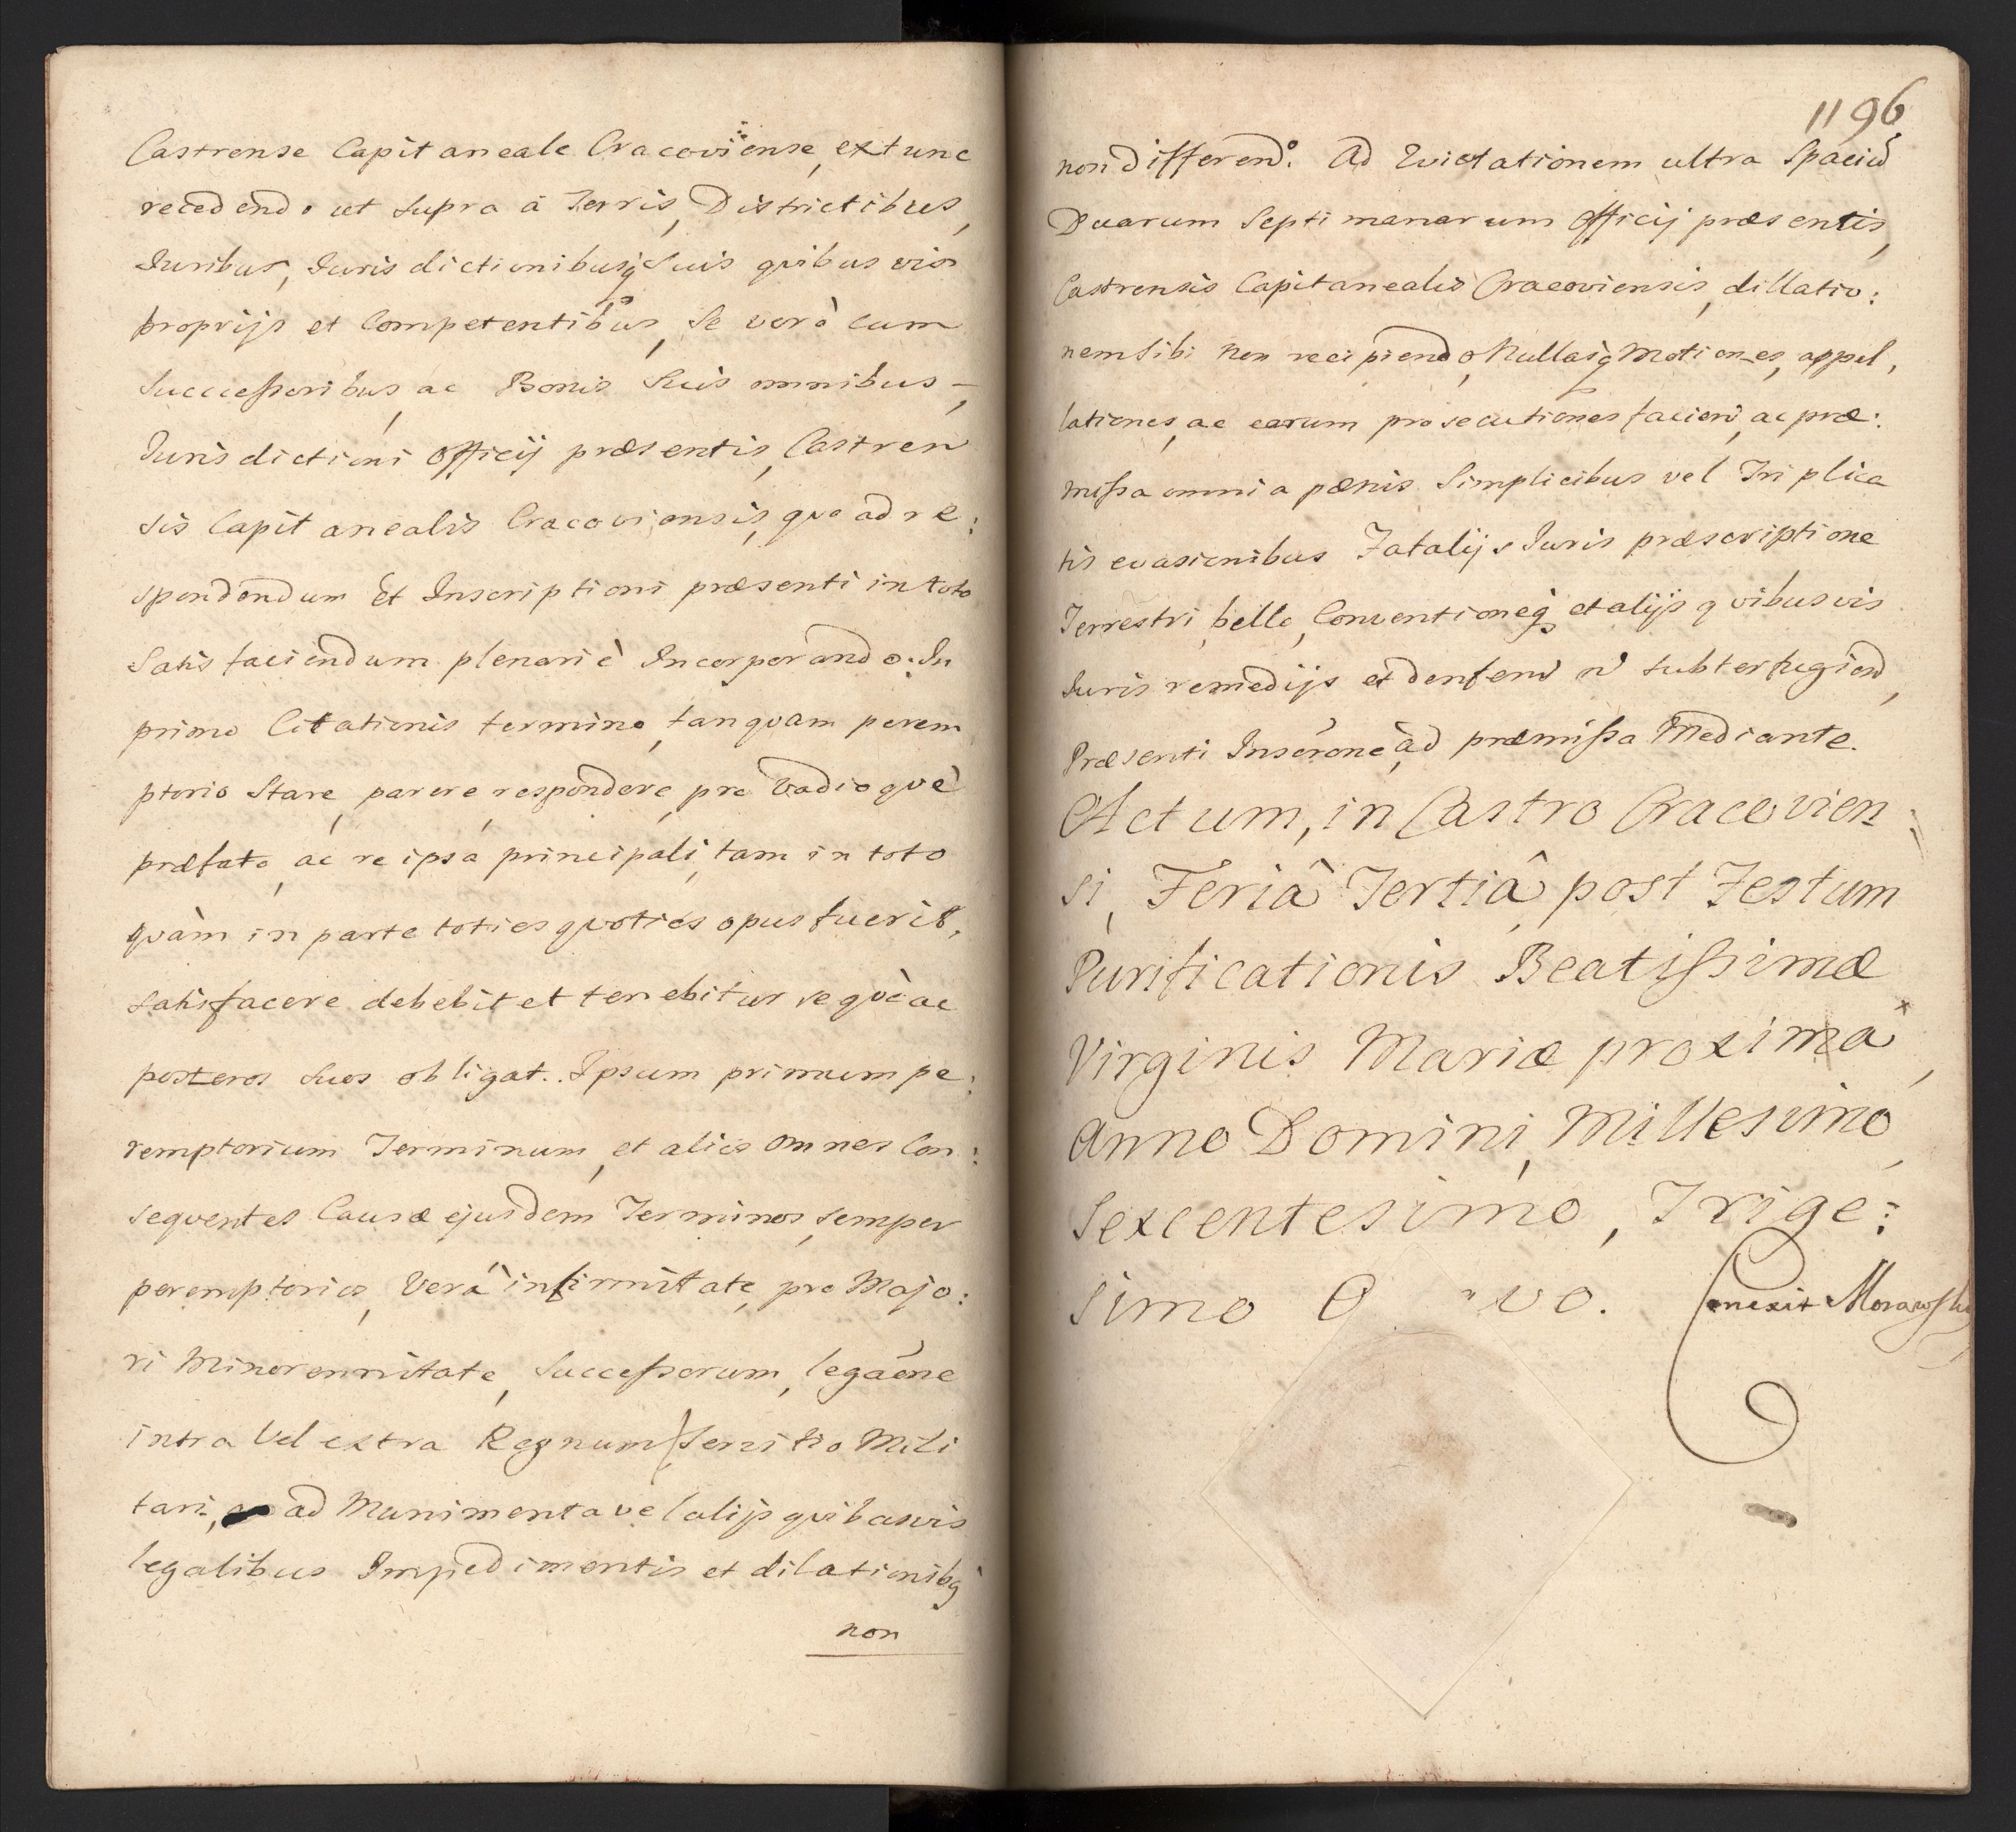 Castrense Capitaneale Cracoviense, extunc
recedendo ut supra à Terris, Districtibus,
Juribus, Jurisdictionibusq Suis quibusvis
proprijs et Competentibus, Se verò cum
Successoribus, ac Bonis Suis omnibus,
Jurisdictioni Officij præsentis, Castren
sis Capitanealis Cracoviensis, quo ad re:
spondendum Et Inscriptioni præsenti in toto
Satisfaciendum plenariè Incorporando: In
primo Citationis termino, tanquam perem
ptorio Stare, parere, respondere, pro Vadioquè
præfato, ac re ipsa principali, tam in toto
quàm in parte toties quoties opus fuerit,
satisfacere debebit et tenebitur sequè ac
posteros suos obligat. Ipsum primum pe:
remptorium Terminum, et alios omnes Con:
sequentes Causæ ejusdem Terminos, semper
peremptorios, Verâ infirmitate, pro Majo:
ri Minorennitate, Successorum, legaõne
intra Vel extra Regnum, Servitio Mili
tari, ad Munimenta vel alijs quibusvis
legalibus Impedimentis et dilationibq
non
1196
non differend. Ad Evictationem ultra Spaciũ
Duarum Septimanarum Officij præsentis,
Castrensis Capitanealis Cracoviensis, dillatio:
nem Sibi non recipiendo, Nullasq Motiones, appel,
lationes, ac earum prosecutiones faciend, ac præ:
missa omnia pænis Simplicibus vel Triplica
tis evasionibus Fatalijs Juris præscriptione
Terrestri, bello, Conventioneq et alijs quibusvis
Juris remedijs et defens n subterfugiend,
Præsenti Inscrõne ad præmissa Mediante.
Actum, in Castro Cracovien
si, Feriâ Tertiâ, post Festum
Purificationis Beatissimæ
Virginis Mariæ proximâ,
Anno Domini, Millesimo,
Sexcentesimo, Trige:
simo O vo. Conexit Morawski